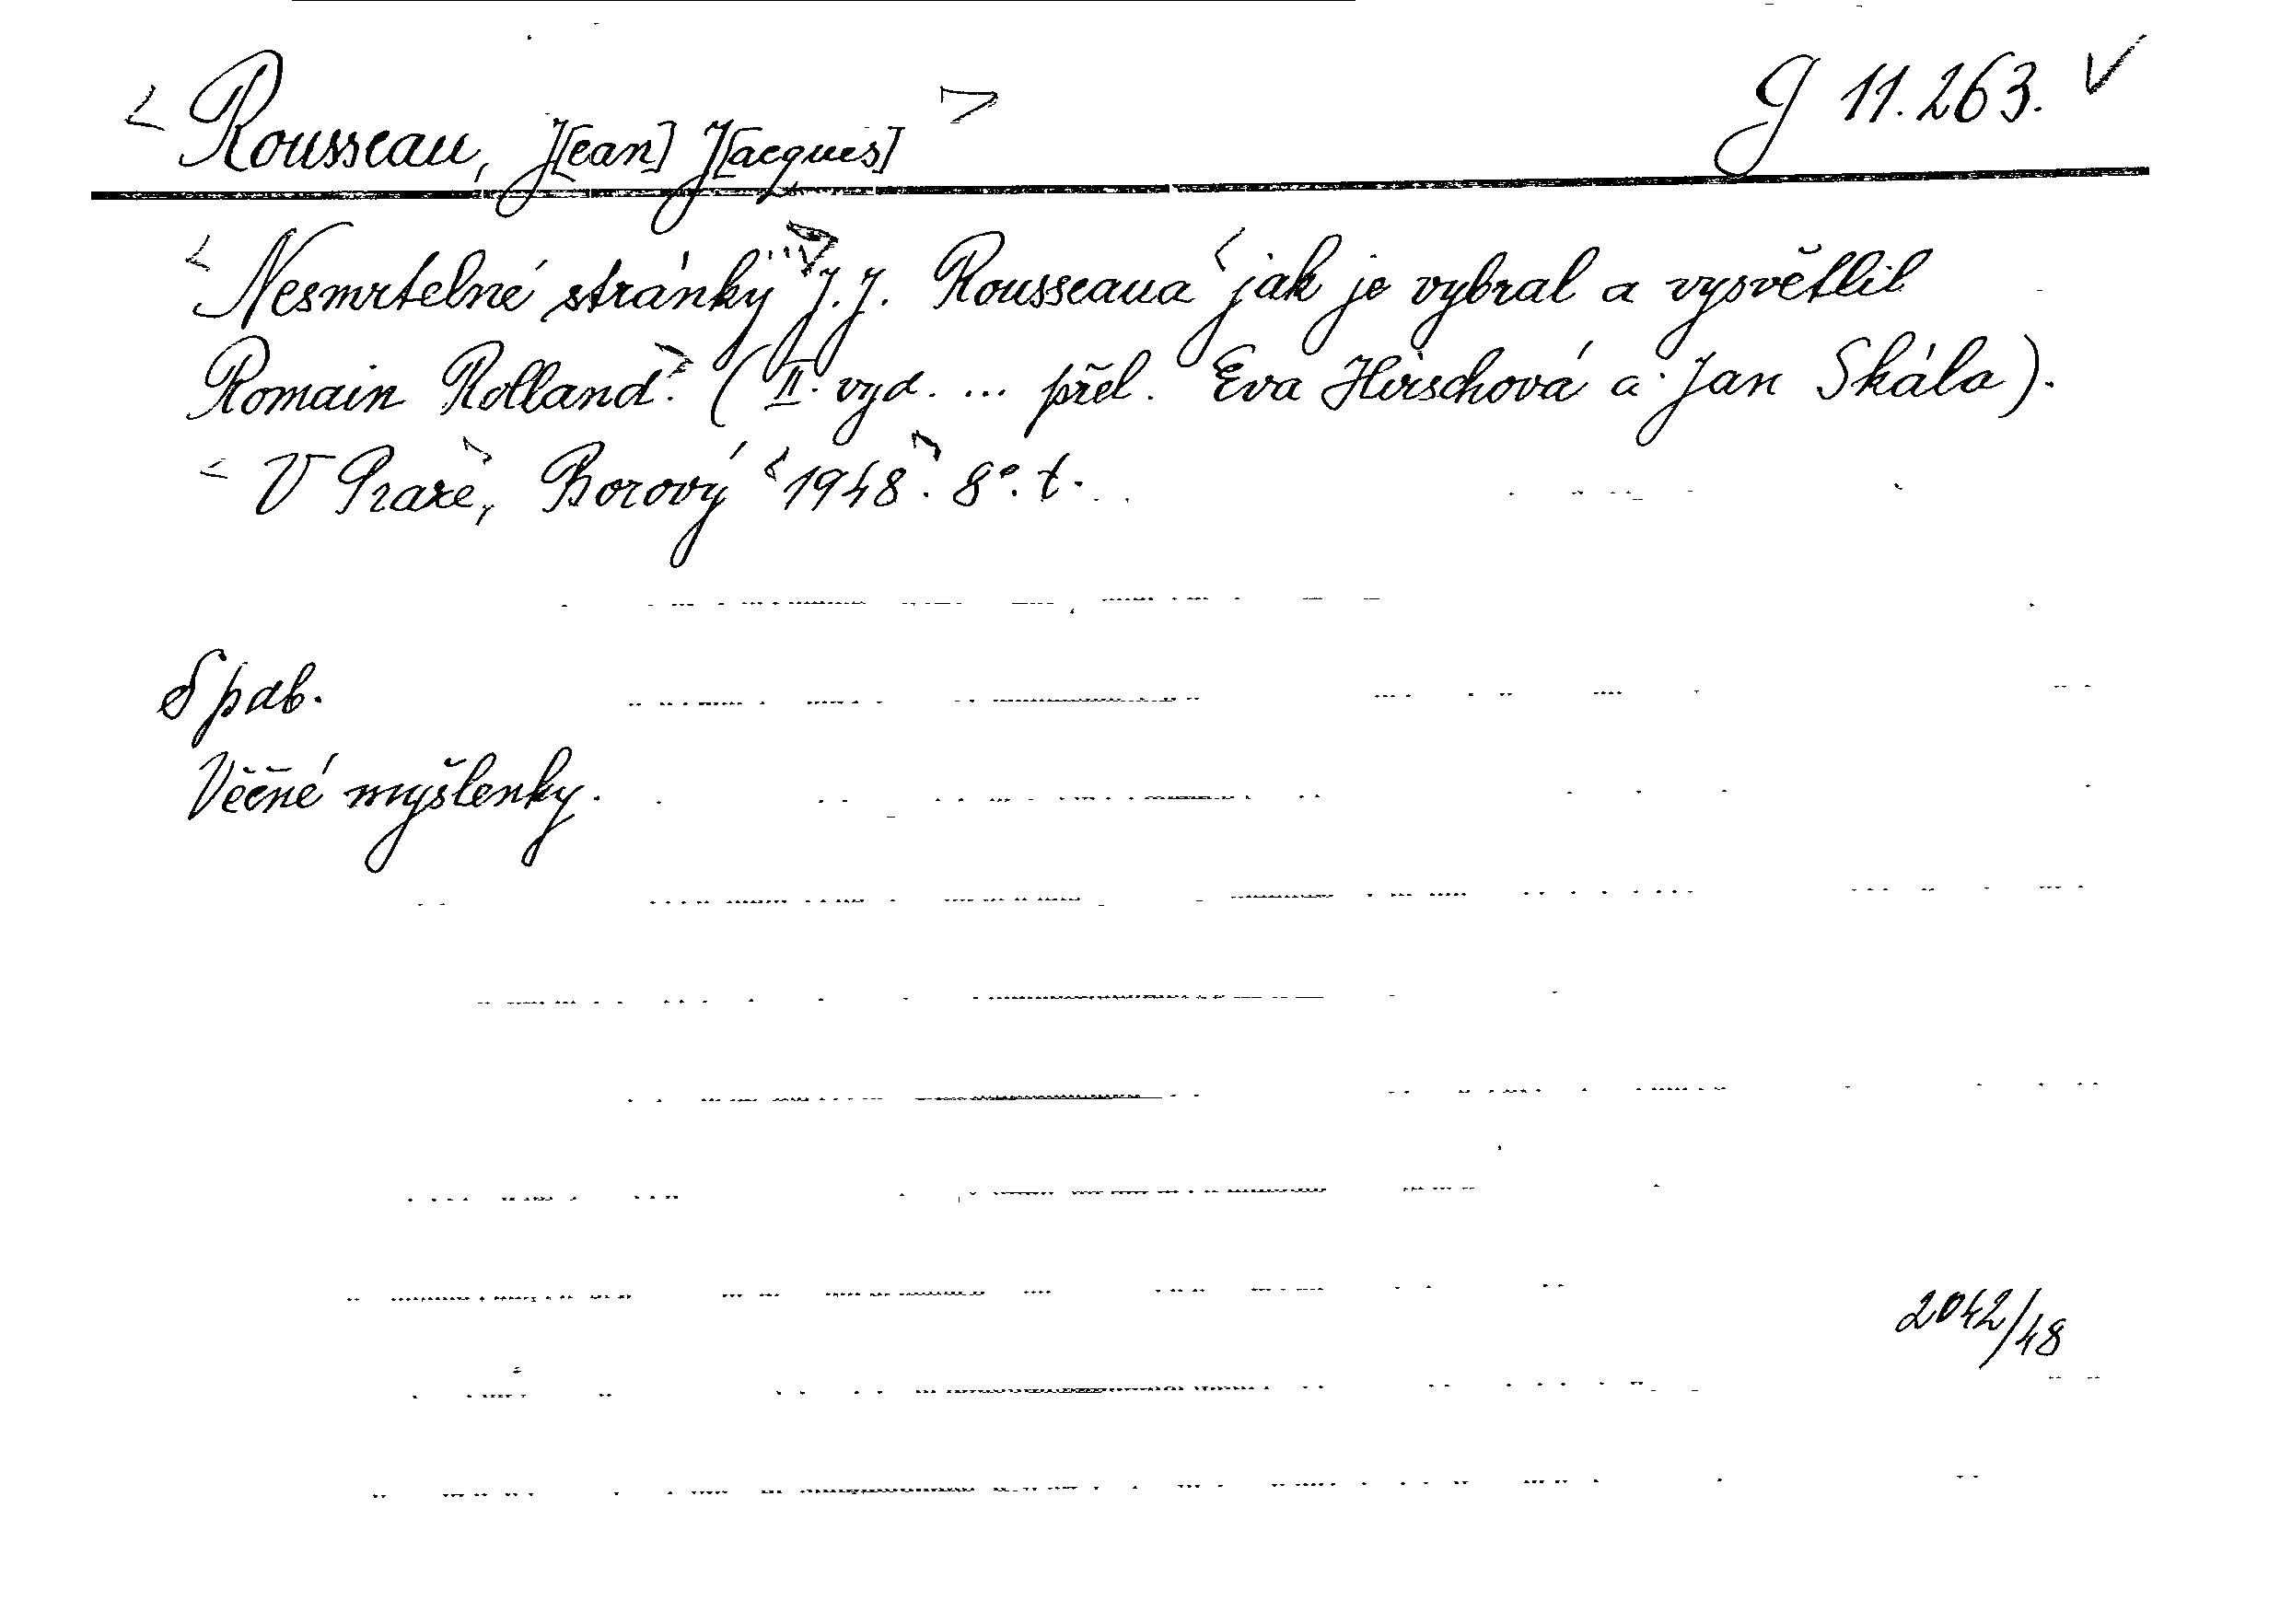 < Rousseau, J[ean] J[acques] > G 11.263. √
< Nesmrtelné stránky > J. J. Rousseaua < jak je vybral a vysvětlil
Romain Rolland. > (II. vyd. ... přel. Eva Hirschová a Jan Skála).
< V Praze, > Borový < 1948. > 8°. t.
Věčné myšlenky.
2042/48